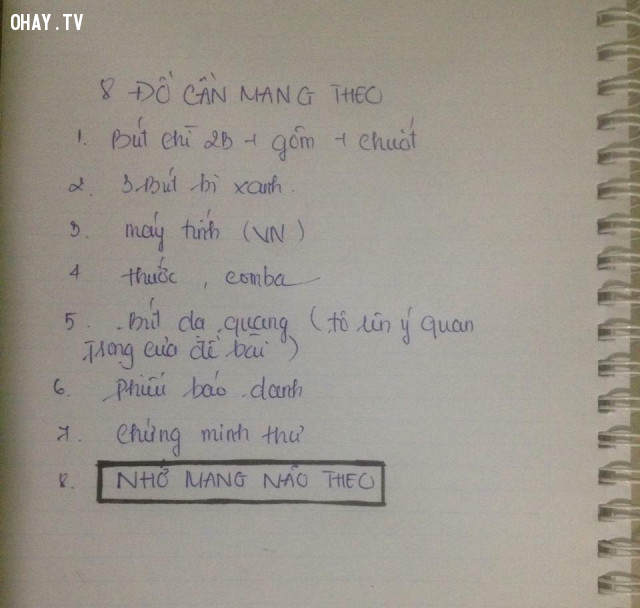 OHAY.TV
8 ĐỒ CẦN MANG THEO
1. Bút chì 2B + gôm + chuốt
2. 3 Bút bi xanh.
3. máy tính (VN)
4 thước, comba
5. Bút dạ quang (tô lên ý quan
trọng của đề bài)
6. phiếu báo danh
7. chứng minh thư
8. NHỚ MANG NÃO THEO